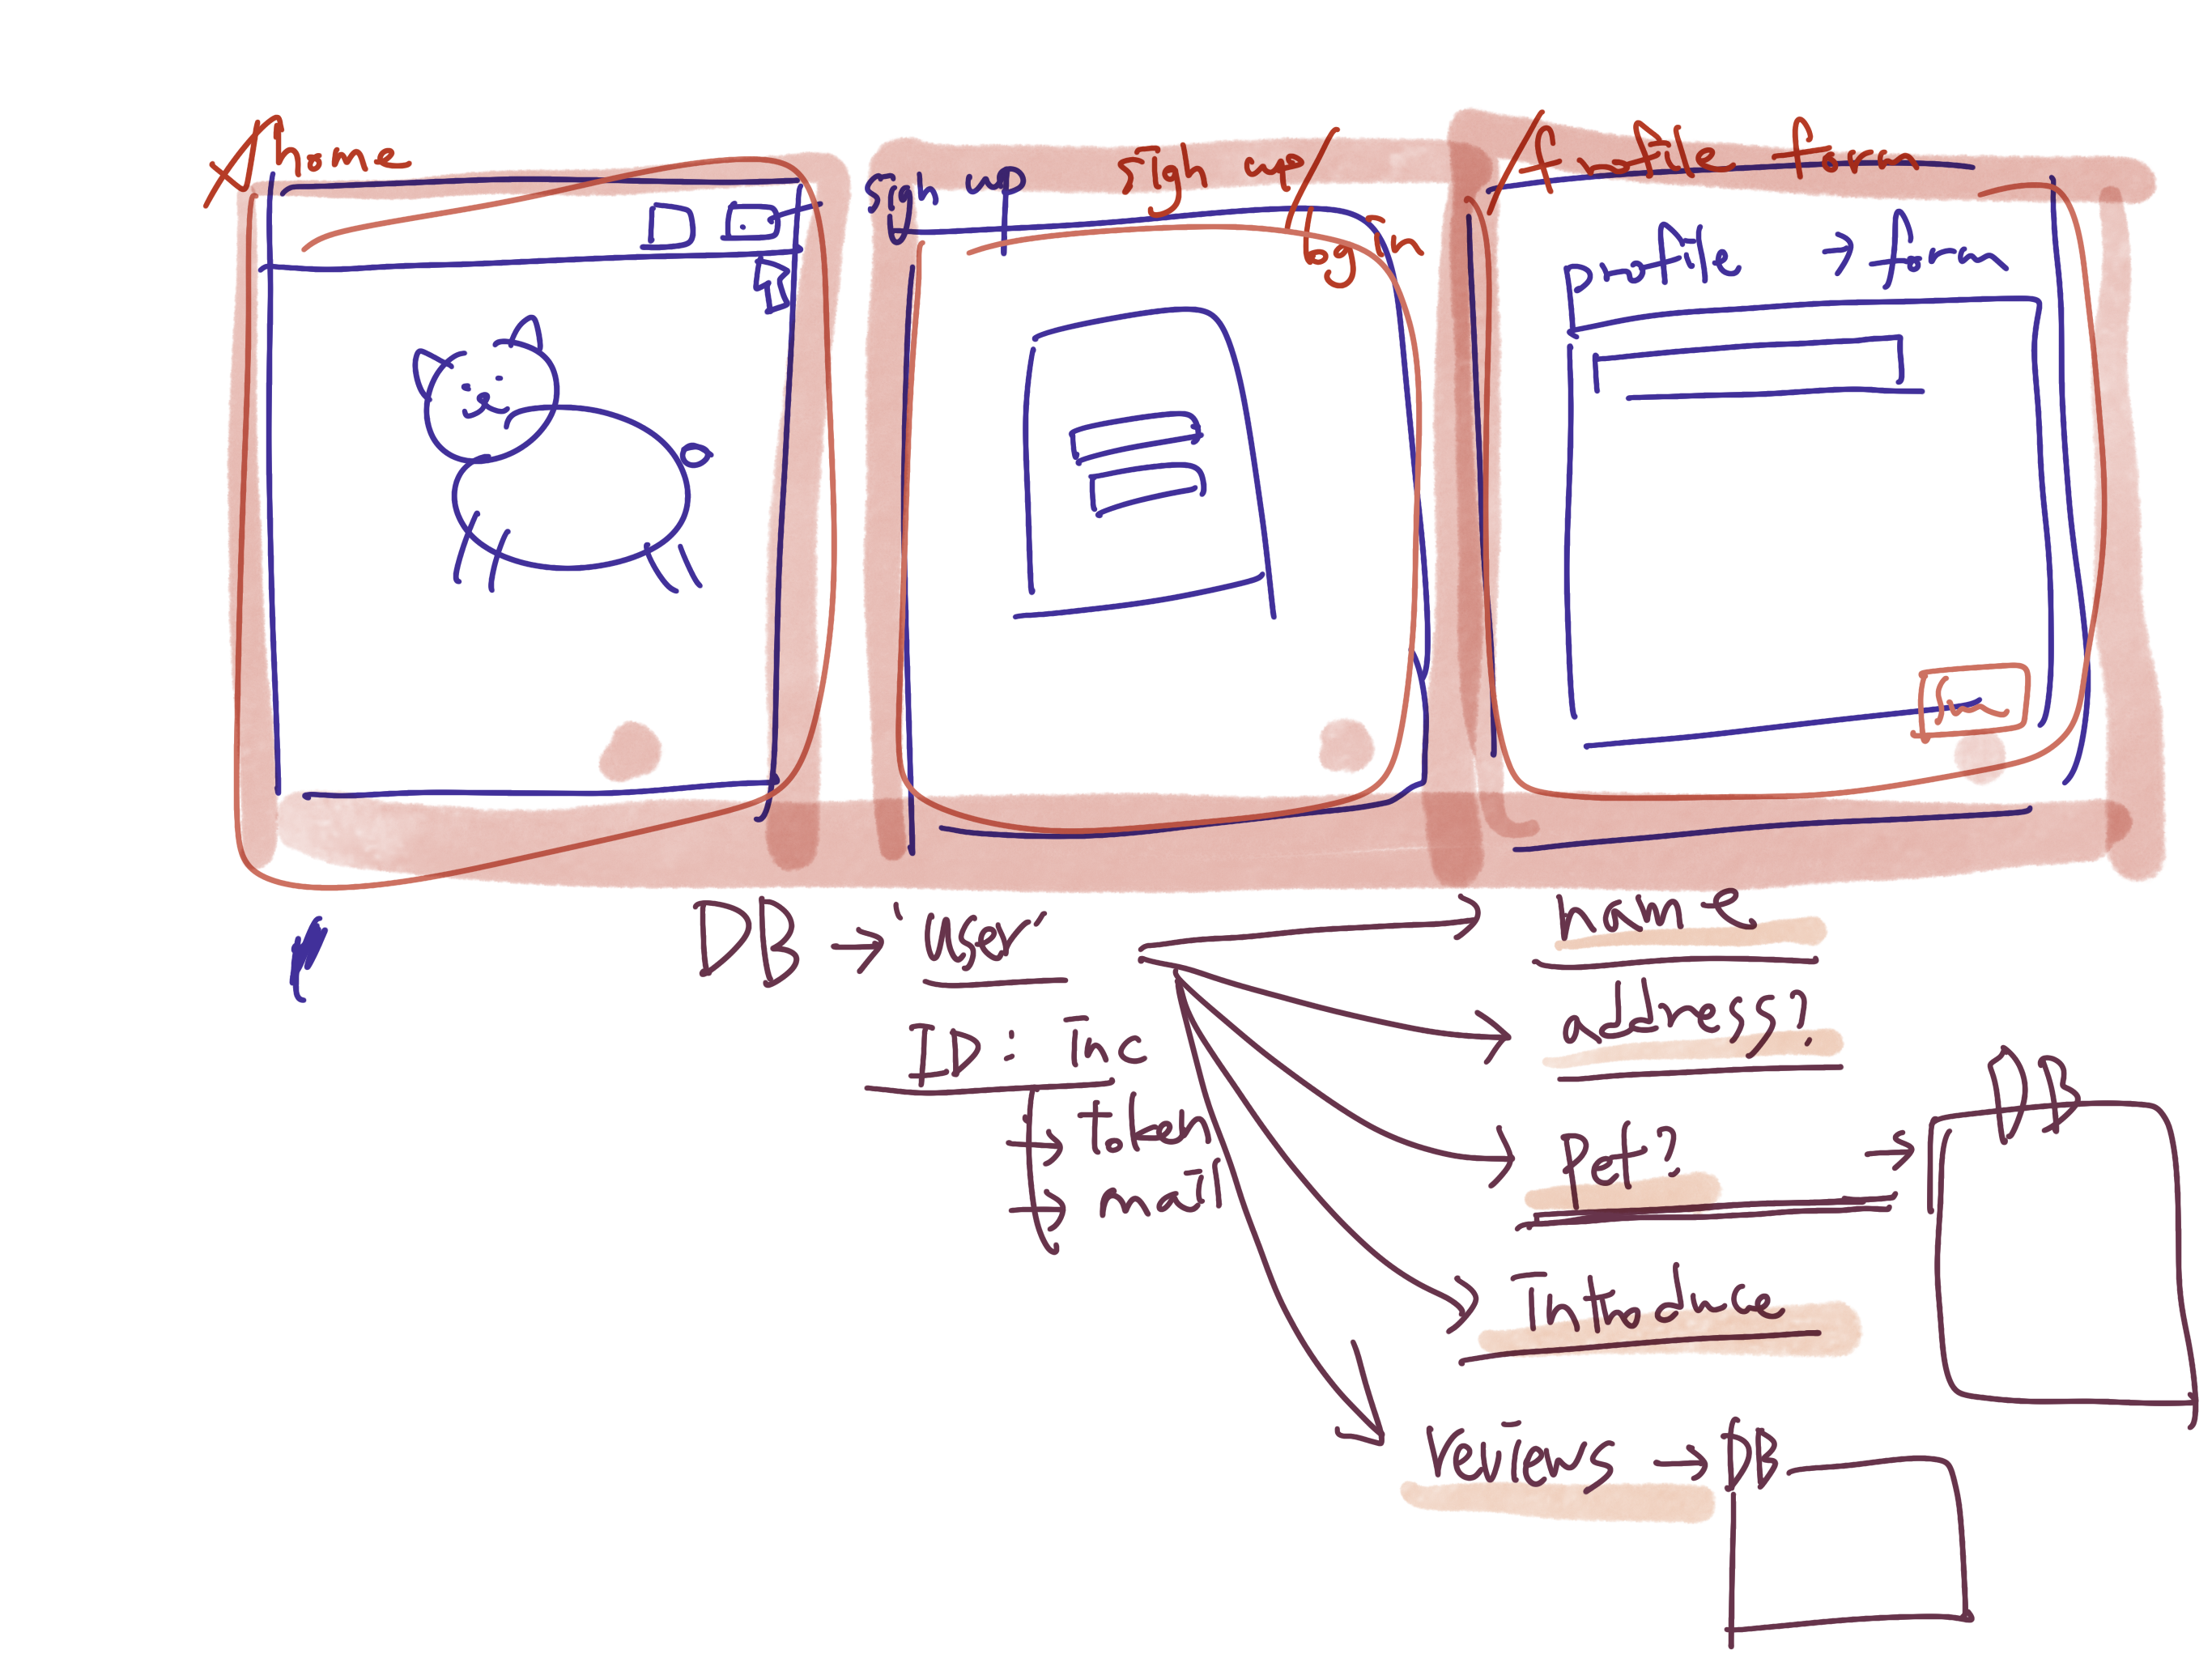 /home
sigh up
sigh up/
log in
/frofile form
profile → form
DB → 'user'
ID : inc
→ token
→ mail
name
address?
Pet? →
DB
introduce
reviews → DB